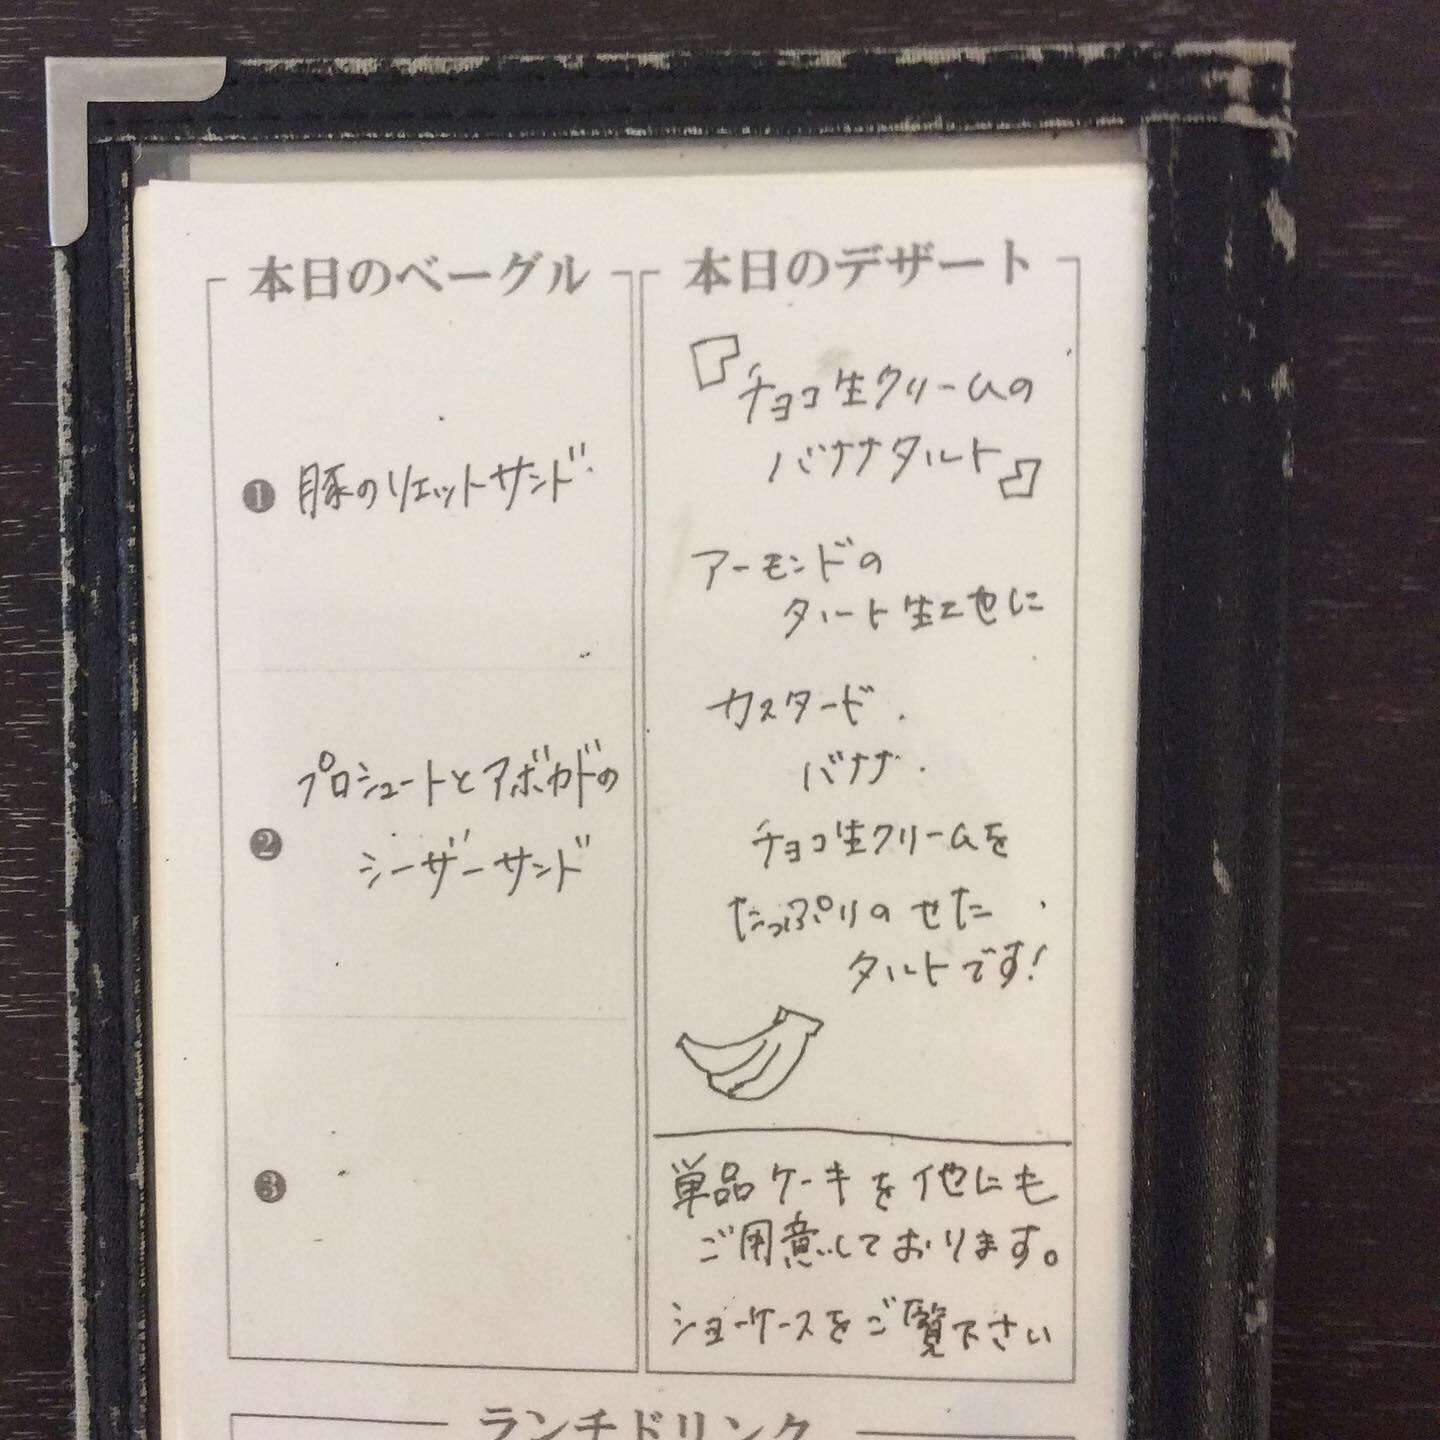 本日のベーグル
❶ 豚のリエットサンド
❷ プロシュートとアボカドの
シーザーサンド
❸
本日のデザート
『チョコ生クリームの
バナナタルト』
アーモンドの
タルト生地に
カスタード、
バナナ、
チョコ生クリームを
たっぷりのせた
タルトです!
単品ケーキを他にも
ご用意しております。
ショーケースをご覧下さい
ランチドリンク